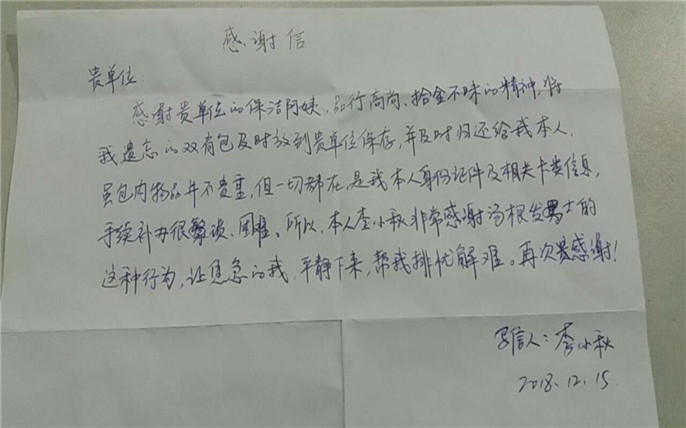 感谢信
贵单位
感谢贵单位的保洁阿姨,品行高尚、拾金不昧的精神,将
我遗忘的双肩包及时放到贵单位保存,并及时归还给我本人.
虽包内物品并不贵重,但一切都在,是我本人身份证件及相关卡类信息,
手续补办很繁琐、困难。所以,本人李小秋非常感谢汤根发男士的
这种行为,让焦急的我,平静下来,帮我排忧解难。再次感谢!
写信人:李小秋
2018.12.15.